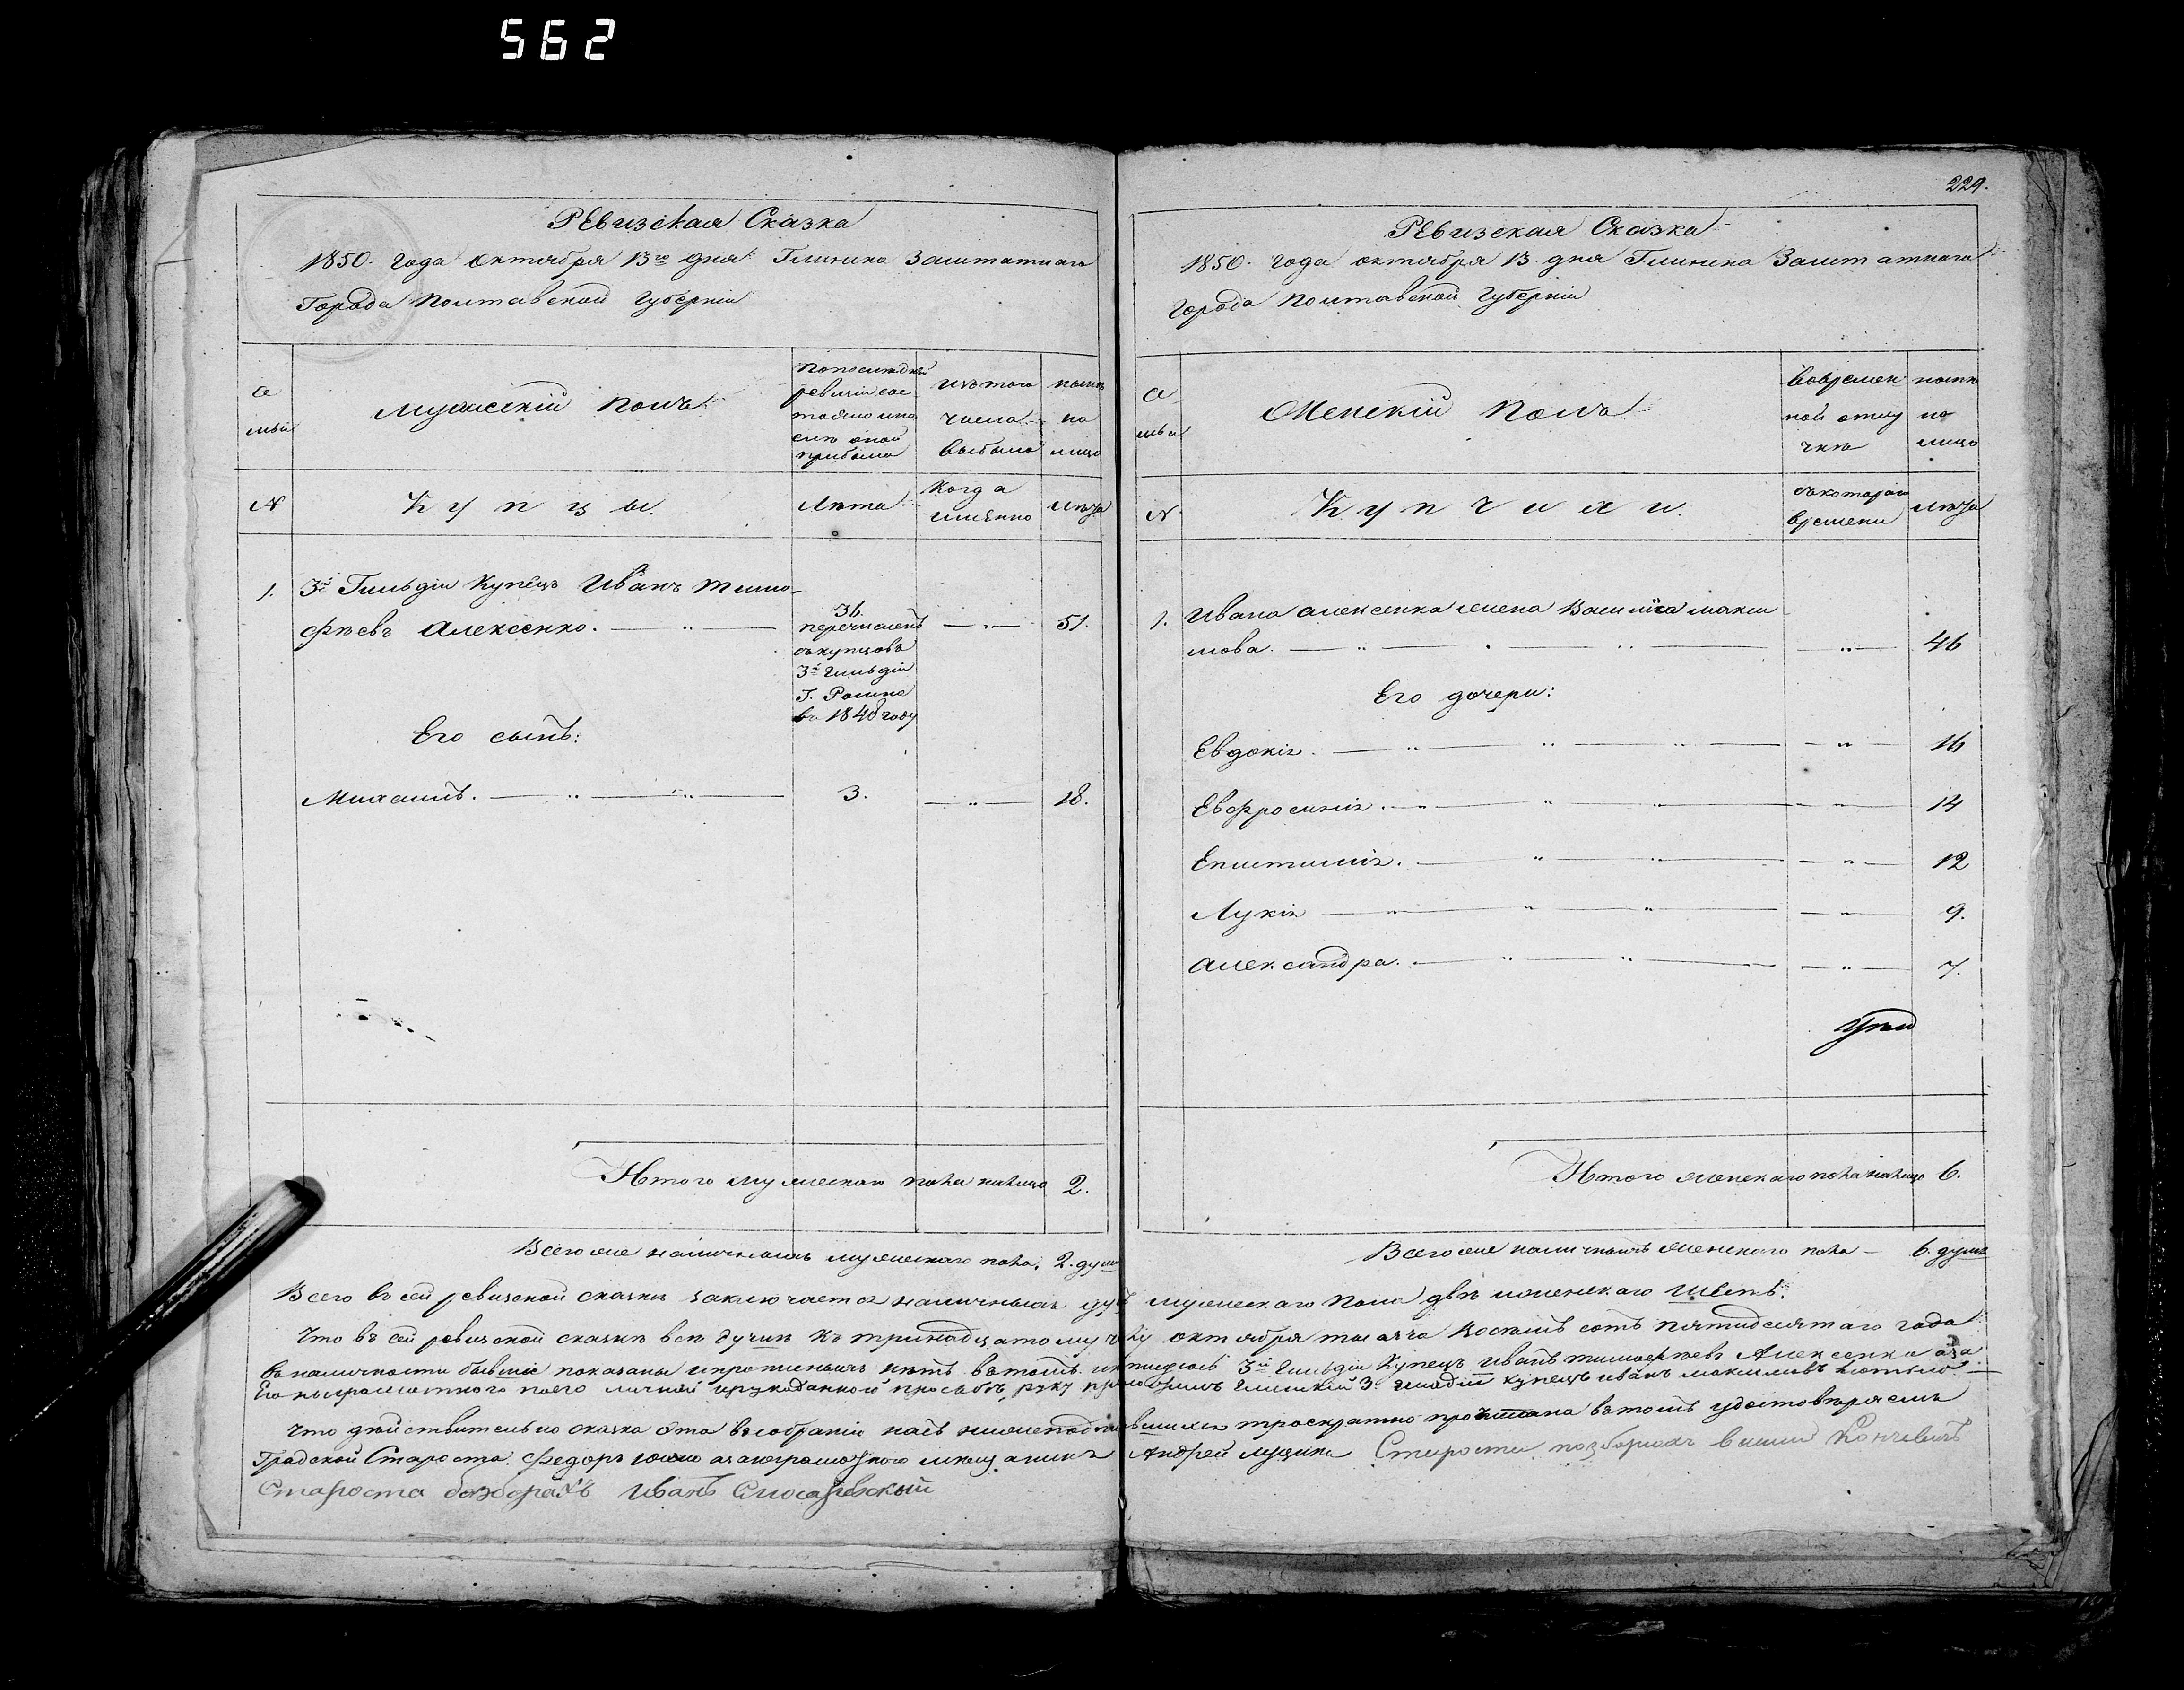 562
Ревизская Сказка
1850. года октября 13го дня Глинска Заштатнаго
Города Полтавской Губерніи
Се
мьи
Мужескій Полъ
По последней
ревизіи сос
тояло и по
слѣ оной
прибыло
Изъ того
числа
выбыло
ныне
на
лицо
№
Купцы.
Лѣта
Когда
имянно
Лѣта
1. 3й Гильдіи Купецъ Иванъ Тимо-
фѣевъ Алексенко. 36. 51.
перечисленъ
съ купцовъ
3й Гильдіи
Г. Ромна
въ 1848 году
Его сынъ:
Михаилъ. 3. 18.
Итого мужескаго пола налицо 2.
Всего же наличныхъ мужескаго пола, 2. души
229.
Ревизская Сказка
1850. года октября 13 дня Глинска Заштатнаго
Города Полтавской Губерніи
Се
мьи
Женскій Полъ
Во времен
ной отлу
чкѣ
ныне
на
лицо
№
Купчихи.
Съ котораго
времени
Лѣта
1. Ивана Алексенка жена Василиса Макси
мова. 46
Его дочери:
Евдокія. 16
Евфросинія. 14
Епистимія. 12
Лукія 9.
Александра. 7.
Итого женскаго пола налицо 6.
Всего же наличныхъ женскаго пола – 6. душъ
Всего въ сей ревизской сказкѣ заключается наличныхъ душъ мужескаго пола двѣ и женскаго шесть.
Что въ сей ревизской сказкѣ всѣ души къ тринадцатому числу октября тысяча восемь сотъ пятидесятаго года
въ наличности бывшіе показаны и прописныхъ нѣтъ въ томъ подписуюсь 3й Гильдіи Купецъ Иванъ Тимофѣевъ Алексенко а за
Его неграмотного по его личной и рукоданной просьбѣ руку приложилъ Глинскій 3. Гильдіи Купецъ Иванъ Максимовъ
Что дѣйствительно сказка эта въ собраніи насъ нижеподписавшихся троекратно прочитана въ томъ удостовѣряемъ
Градской Староста Федоръ а за неграмотного мещанинъ Андрей Староста
Староста Иванъ Слюсаревскый